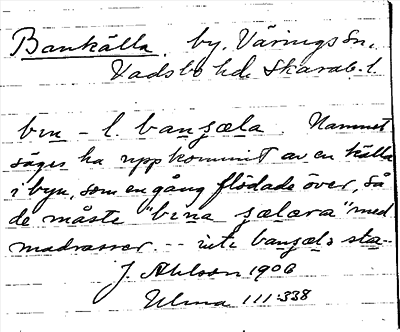 Bankälla. by. Värings sn.
Vadsbo hd. Skarab. l.
bɩn - l. banʂæla. Namnet
säges ha uppkommit av en källa
i byn, som en gång flödade över, så
de måste "bɩna ʂælæra" med
madrasser. -- inte banʂæl.
J. Ahlson 1906
Ulma 111:338